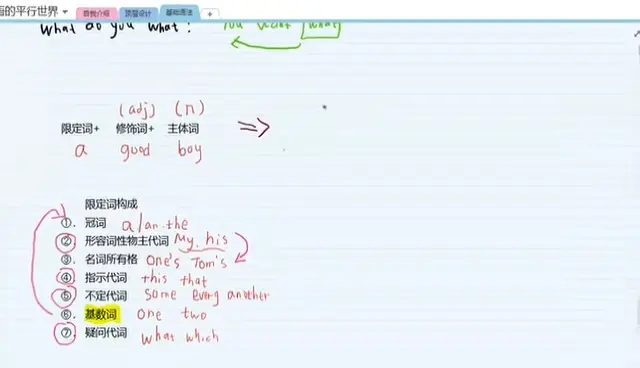 的平行世界 自我介绍 顶层设计 基础语法
What do you what? You want what
(adj) (n)
限定词+ 修饰词+ 主体词 =>
a good boy
限定词构成
①. 冠词 a/an the
②. 形容词性物主代词 My. his
③. 名词所有格 one's Tom's
④. 指示代词 this that
⑤. 不定代词 some every another
⑥. 基数词 one two
⑦. 疑问代词 what which